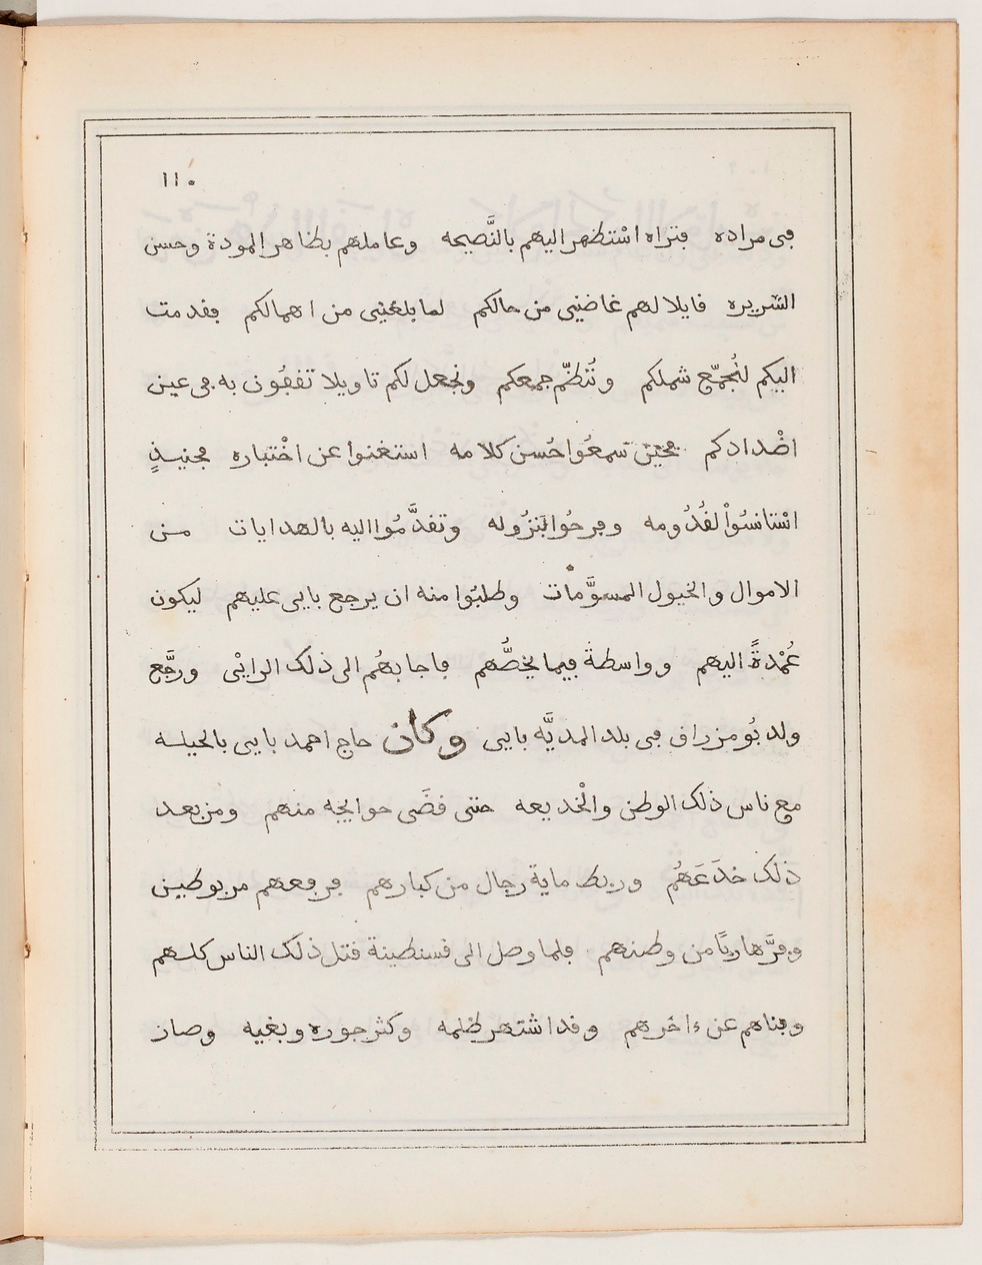 ١١٠
في مراده فتراه اسْتظهر اليهم بالنَّصيحه وعاملهم بظاهر المودة وحسن
السّريره قايلا لهم غاضني من حالكم لما بلغني من اهمالكم فقدمت
اليكم لنُجمّع شملكم ونُنظّم جمعكم ونجعل لكم تاويلا تقفُون به في عين
اضْدادكم فحين سمعُوا حُسن كلامه استغنوا عن اخْتباره فحنيـذٍ
اسْتانسُواْ لقُدُومه وفرحُوا بنزُوله وتقدَّمُوا اليه بالهدايات مـن
الاموال والخيول المسوَّمات وطلبُوا منه ان يرجع بايي عليهم ليكون
عُمْدةً اليهم وواسطة فيما يخصُّهم فاجابهُم الى ذلك الرايْي ورجَّع
ولد بُومزراق في بلد المديَّه بايي وكان حاج احمد بايي بالحيلـه
مع ناس ذلك الوطن والْخديعه حتى قضَى حوايجه منهم ومن بعـد
ذلك خدَعَهُم وربط ماية رجال من كبارهم فرفعهم مربوطيـن
وفرَّ هاربًا من وطنهم فلما وصل الى قسنطينة قتل ذلك الناس كلـهم
وفناهم عن ءاخرهم وقد اشتهر ظلمه وكثر جوره وبغيه وصار